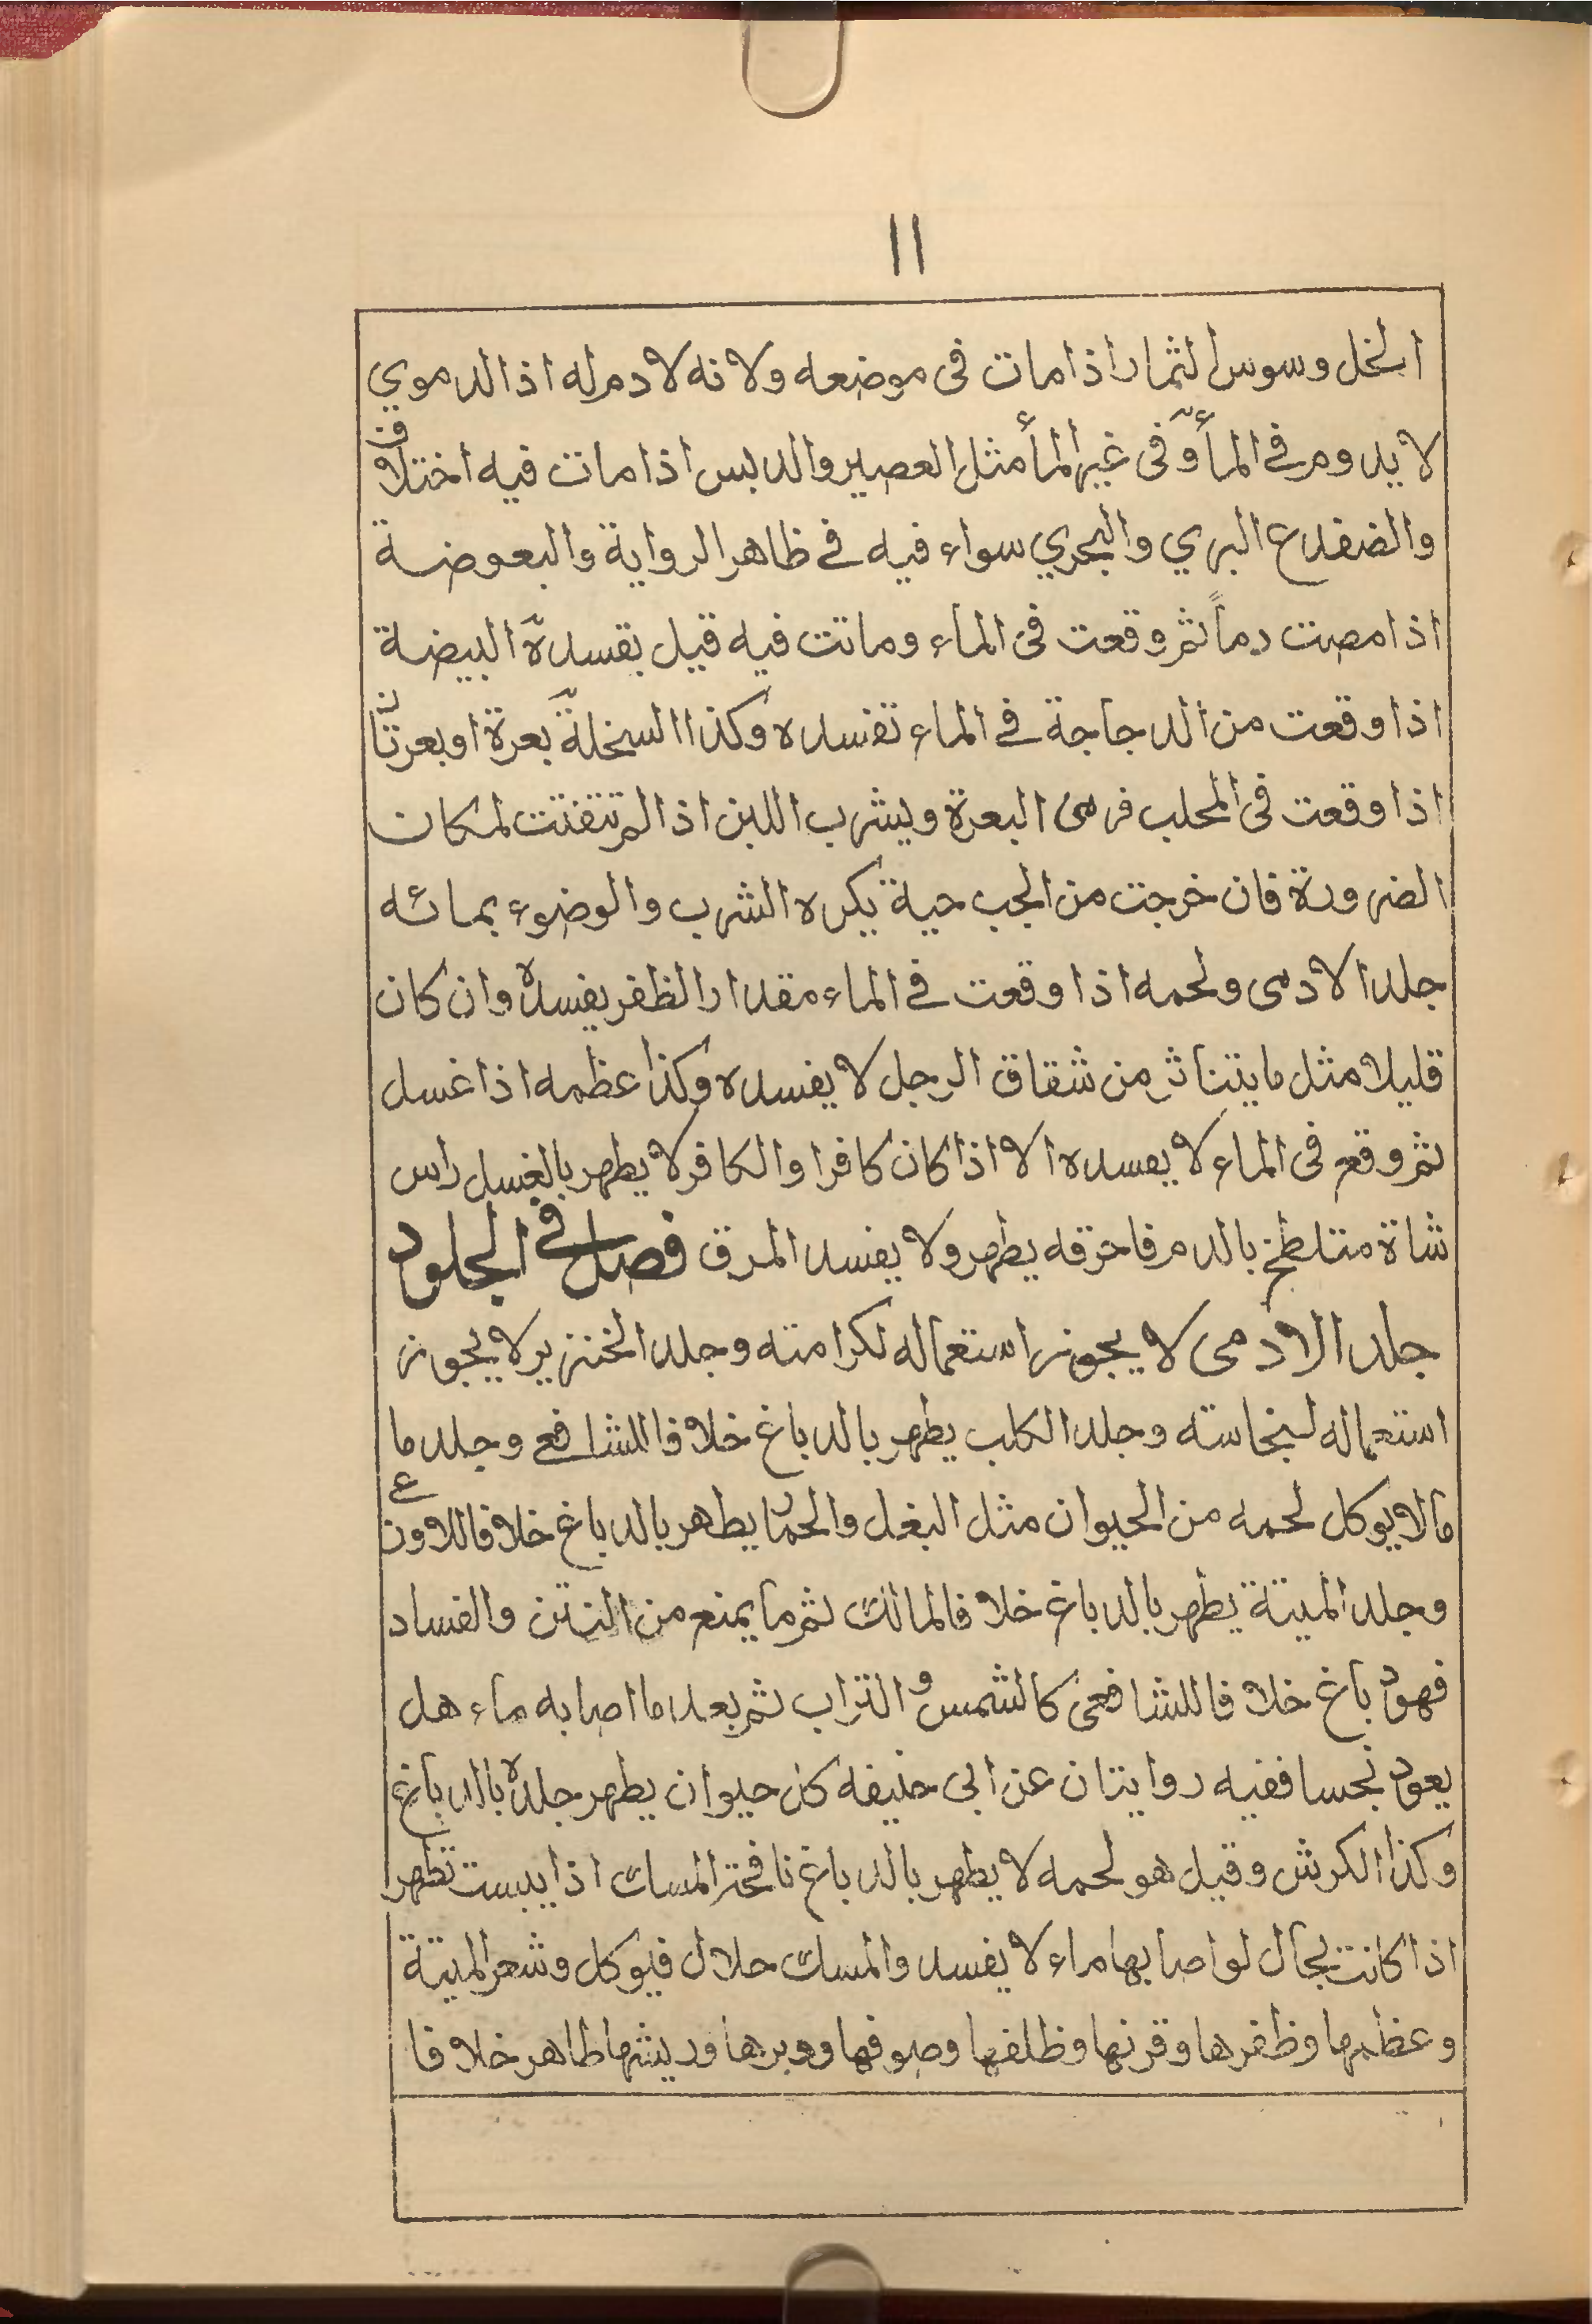 ١١
الخل وسوس الثمار اذا مات فى موضعه ولانه لا دم له اذ الدموي
لا يدوم فى المأ وفى غير المأ مثل العصير والدبس اذا مات فيه اختلاف
والضفدع البري والبحري سواء فيه فى ظاهر الرواية والبعوضة
اذا مصت دماً ثم وقعت فى الماء وماتت فيه قيل يفسده البيضة
اذا وقعت من الدجاجة فى الماء تفسده وكذا السخلة بعرة او بعرتان
اذا وقعت فى المحلب فرمى البعرة ويشرب اللبن اذا لم تتفتت لمكان
الضرورة فان خرجت من الجب حية يكره الشرب والوضوء بمائه
جلد الادمى ولحمه اذا وقعت فى الماء مقدار الظفر يفسده وان كان
قليلا مثل ما يتناثر من شقاق الرجل لا يفسده وكذا عظمه اذا غسل
ثم وقع فى الماء لا يفسده الا اذا كان كافرا والكافر لا يطهر بالغسل راس
شاة متلطخ بالدم فاحرقه يطهر ولا يفسد المرق فصل فى الجلود
جلد الادمى لا يجوز استعماله لكرامته وجلد الخنزير لا يجوز
استعماله لنجاسته وجلد الكلب يطهر بالدباغ خلافا للشافعى وجلد ما
مالا يوكل لحمه من الحيوان مثل البغل والحمار يطهر بالدباغ خلافا للاوزعى
وجلد الميتة يطهر بالدباغ خلافا لمالك ثم ما يمنع من النتن والفساد
فهو دباغ خلافا للشافعى كالشمس والتراب ثم بعد ما اصابه ماء هل
يعود نجسا ففيه روايتان عن ابى حنيفه كل حيوان يطهر جلده بالدباغ
وكذا الكرش وقيل هو لحمه لا يطهر بالدباغ نافجة المسك اذا يبست تطهر
اذا كانت بحال لو اصابها ماء لا يفسد والمسك حلال فيوكل وشعر الميتة
وعظمها وظفرها وقرنها وظلفها وصوفها ووبرها وريشها طاهر خلافا